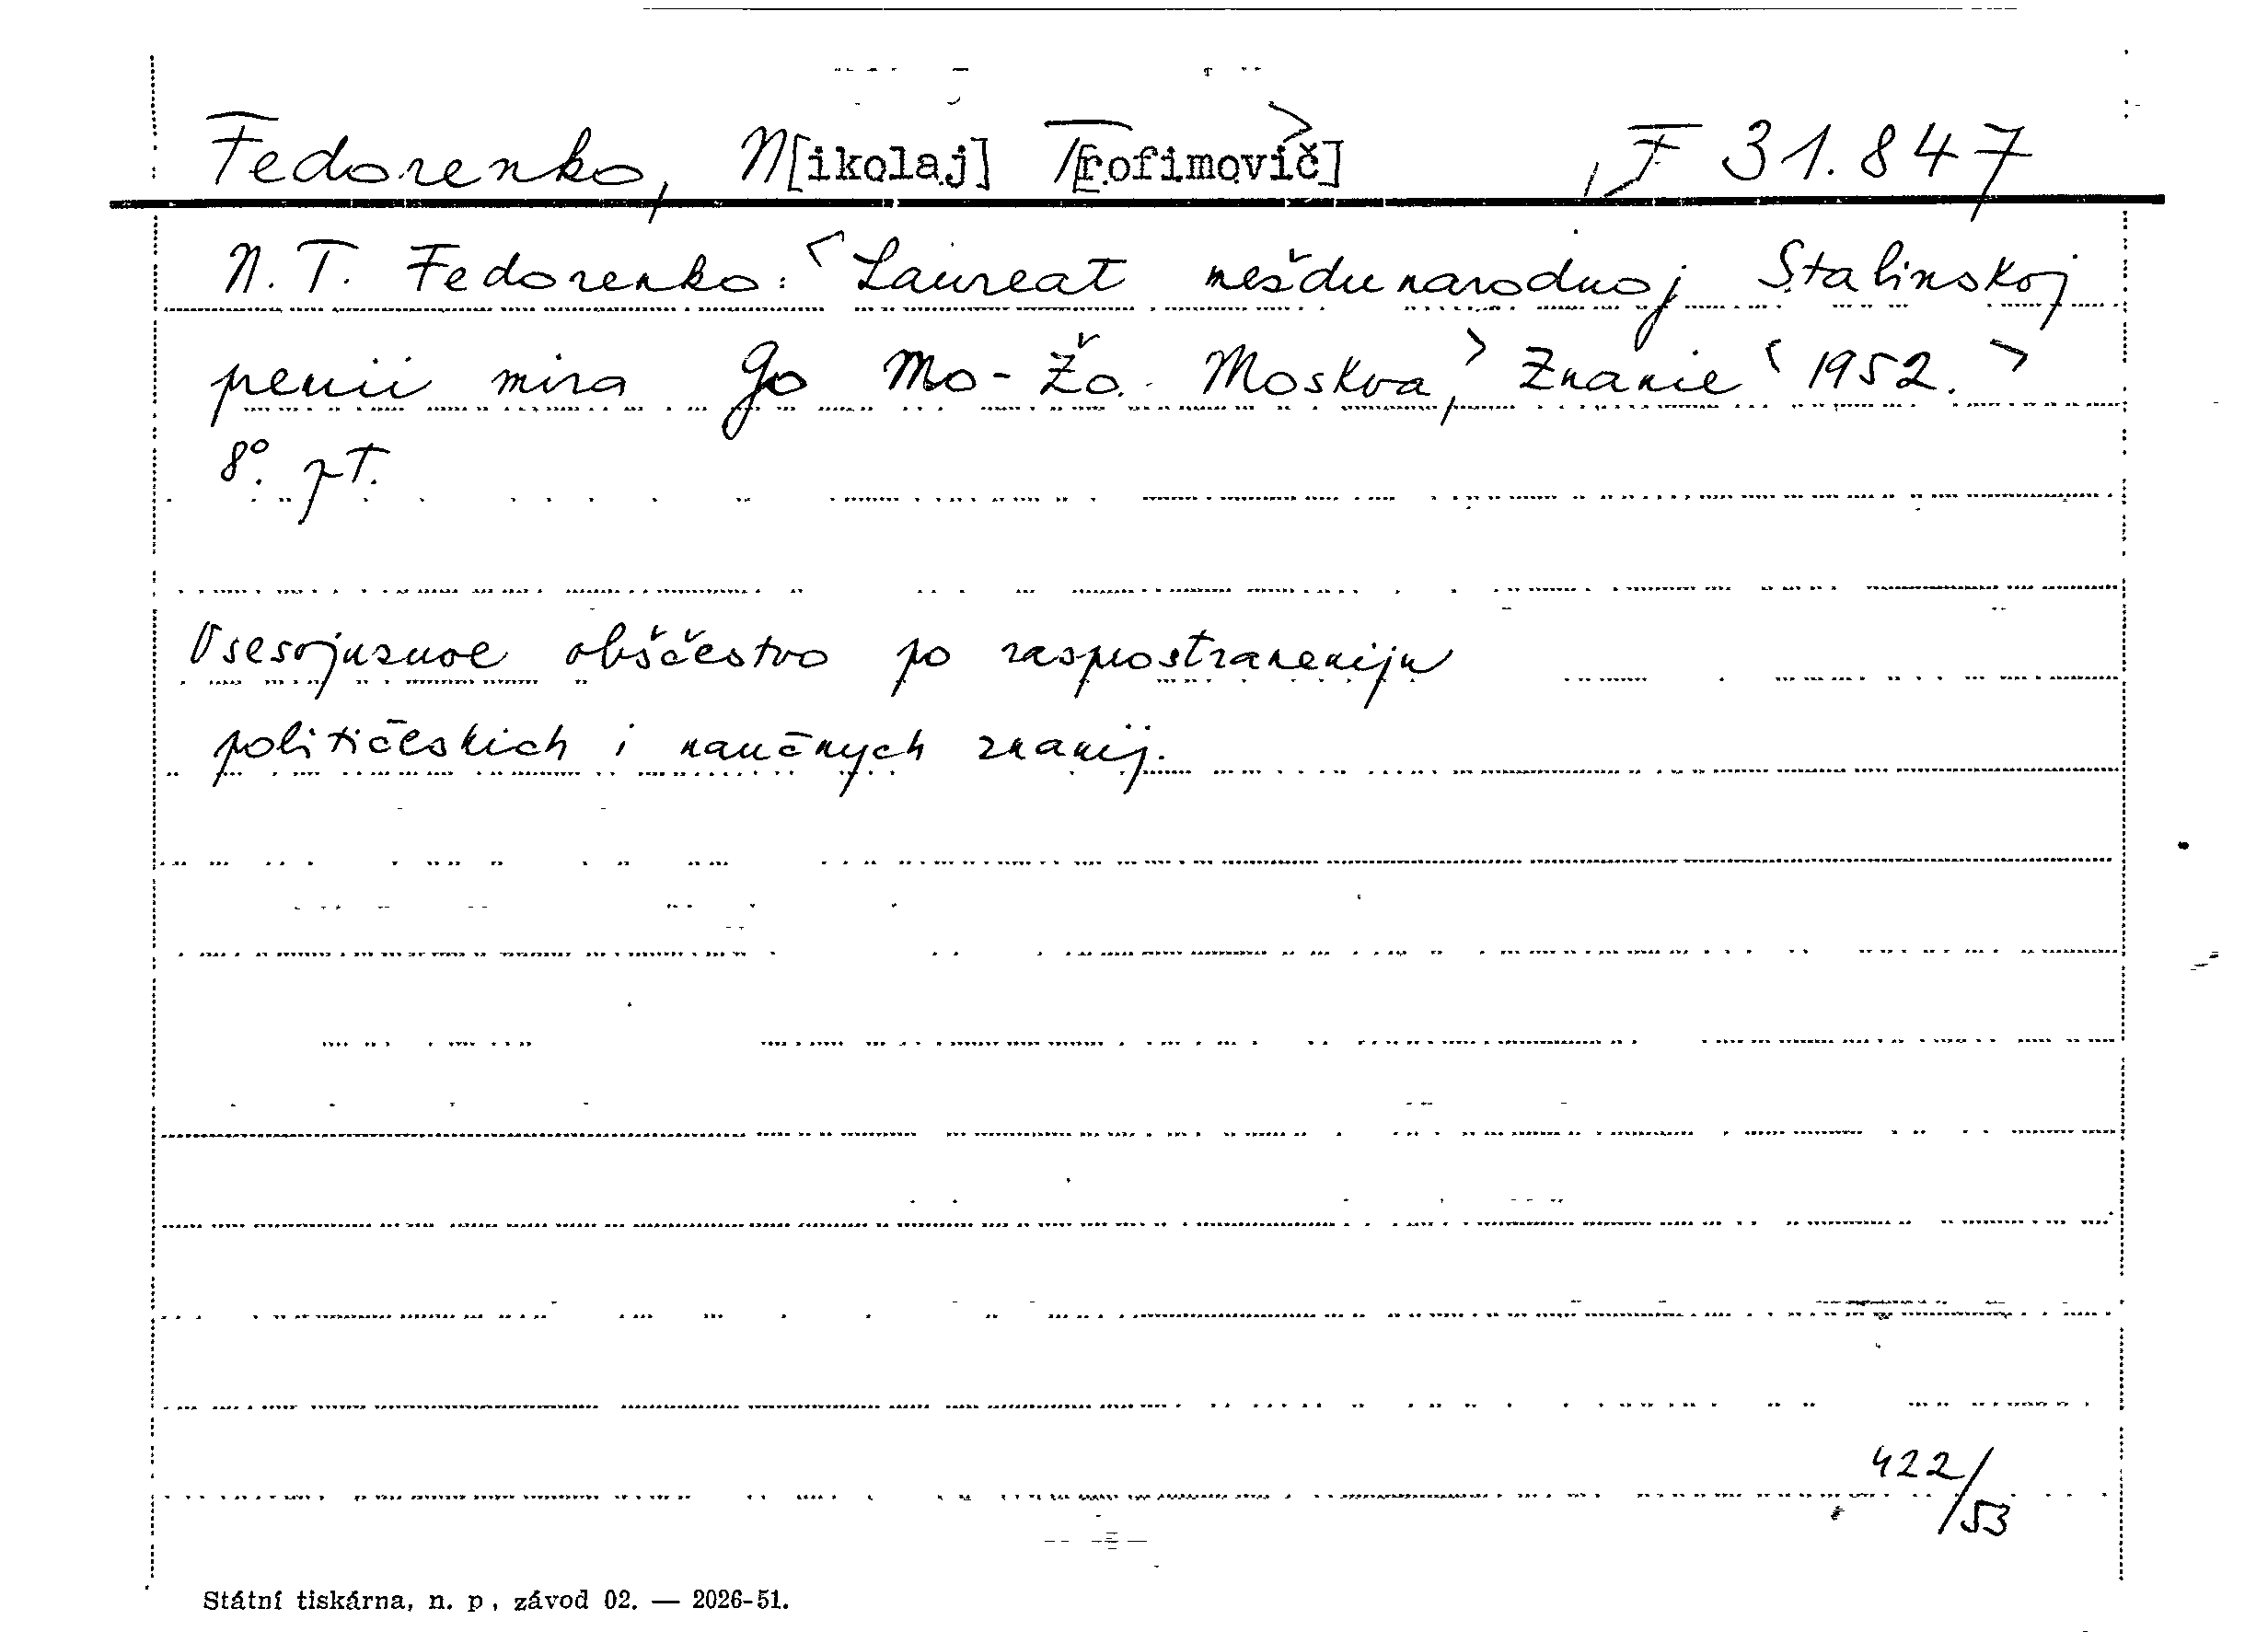 Fedorenko, N[ikolaj] T[rofimovič] F 31.847
N. T. Fedorenko: <Laureat meždunarodnoj Stalinskoj
premii mira Go Mo-Žo. Moskva,> Znanie <1952.>
8°. pT.
Vsesojuznoe obščestvo po rasprostraneniju
političeskich i naučnych znanij.
422/53
Státní tiskárna, n. p., závod 02. — 2026-51.